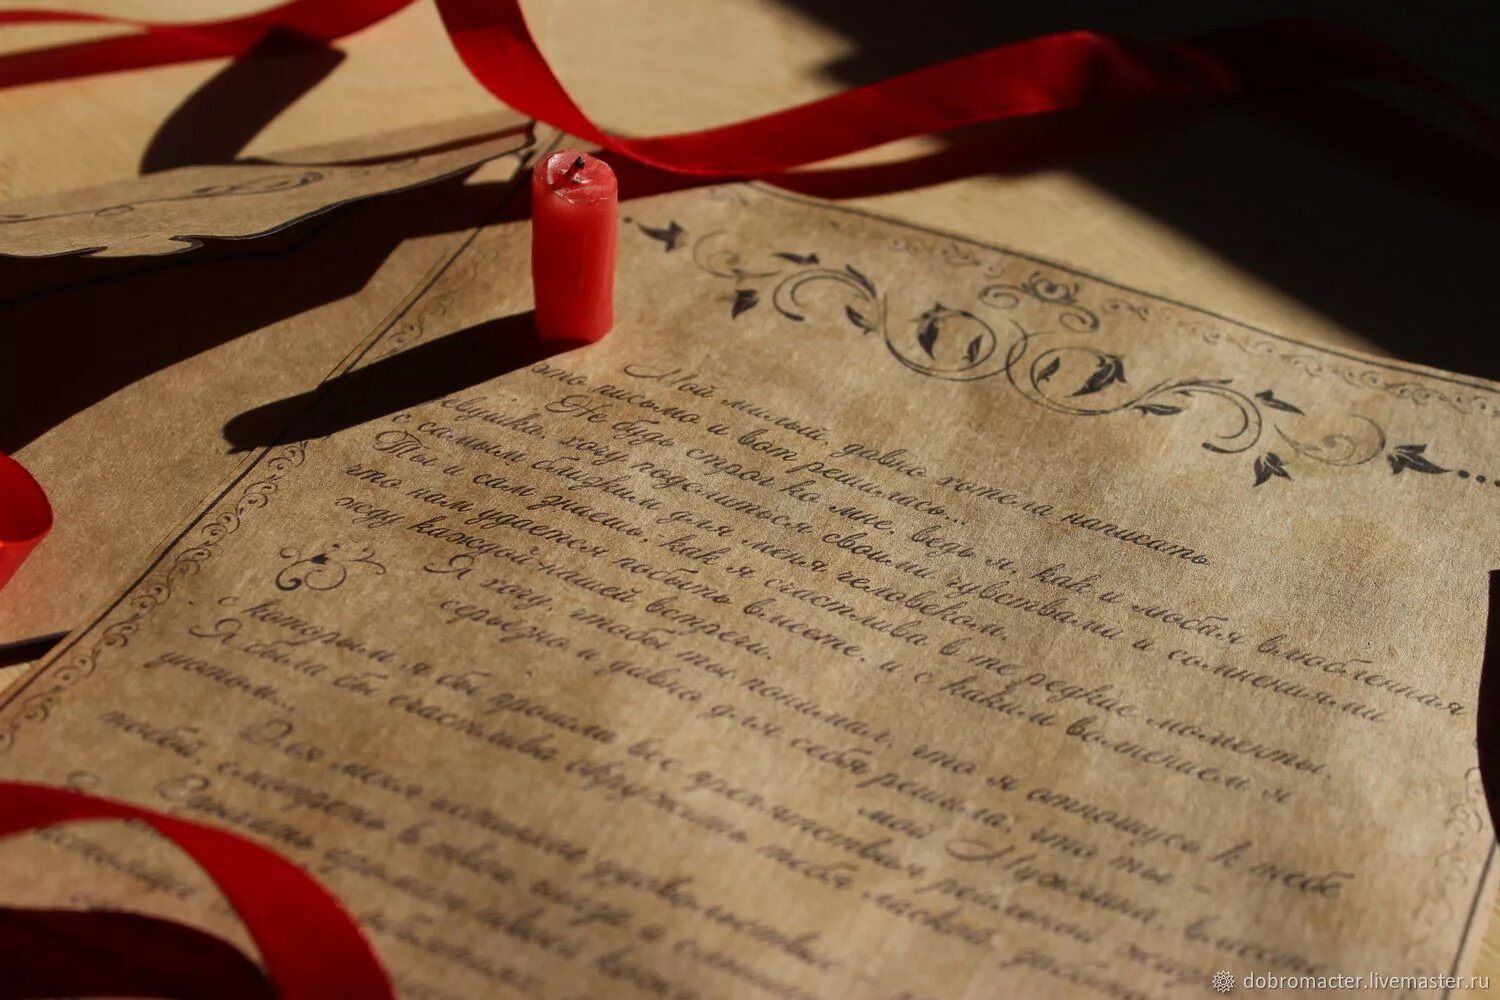 Мой милый, давно хотела написать
это письмо и вот решилась...
Не будь строг ко мне, ведь я, как и любая влюбленная
девушка, хочу поделиться своими чувствами и сомнениями
с самым близким для меня человеком.
Ты и сам знаешь, как я счастлива в те редкие моменты,
что нам удается побыть вместе, и с каким волнением я
жду каждой нашей встречи.
Я хочу, чтобы ты понимал, что я отношусь к тебе
серьезно и давно для себя решила, что ты -
мой Мужчина, вместе
с которым я бы прошла все препятствия реальной
Я была бы счастлива окружить тебя лаской,
уютом...
Для меня истинное удовольствие
тобой, смотреть в твои
dobromacter.livemaster.ru